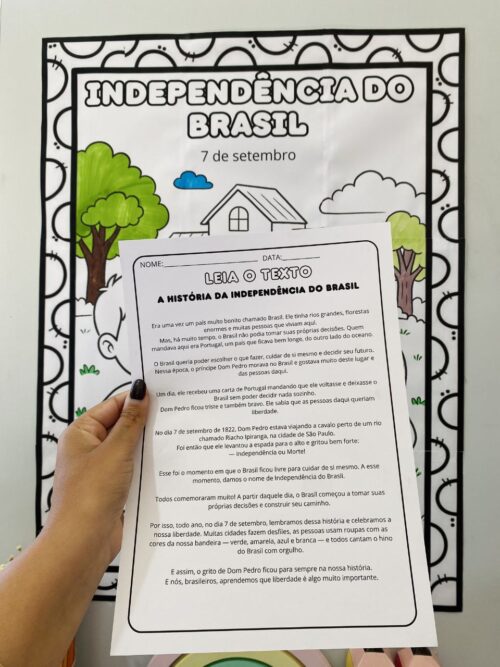 INDEPENDÊNCIA DO
BRASIL
7 de setembro
NOME:____________________ DATA:________
LEIA O TEXTO
A HISTÓRIA DA INDEPENDÊNCIA DO BRASIL
Era uma vez um país muito bonito chamado Brasil. Ele tinha rios grandes, florestas
enormes e muitas pessoas que viviam aqui.
Mas, há muito tempo, o Brasil não podia tomar suas próprias decisões. Quem
mandava aqui era Portugal, um país que ficava bem longe, do outro lado do oceano.
O Brasil queria poder escolher o que fazer, cuidar de si mesmo e decidir seu futuro.
Nessa época, o príncipe Dom Pedro morava no Brasil e gostava muito deste lugar e
das pessoas daqui.
Um dia, ele recebeu uma carta de Portugal mandando que ele voltasse e deixasse o
Brasil sem poder decidir nada sozinho.
Dom Pedro ficou triste e também bravo. Ele sabia que as pessoas daqui queriam
liberdade.
No dia 7 de setembro de 1822, Dom Pedro estava viajando a cavalo perto de um rio
chamado Riacho Ipiranga, na cidade de São Paulo.
Foi então que ele levantou a espada para o alto e gritou bem forte:
— Independência ou Morte!
Esse foi o momento em que o Brasil ficou livre para cuidar de si mesmo. A esse
momento, damos o nome de Independência do Brasil.
Todos comemoraram muito! A partir daquele dia, o Brasil começou a tomar suas
próprias decisões e construir seu caminho.
Por isso, todo ano, no dia 7 de setembro, lembramos dessa história e celebramos a
nossa liberdade. Muitas cidades fazem desfiles, as pessoas usam roupas com as
cores da nossa bandeira — verde, amarela, azul e branca — e todos cantam o hino
do Brasil com orgulho.
E assim, o grito de Dom Pedro ficou para sempre na nossa história.
E nós, brasileiros, aprendemos que liberdade é algo muito importante.